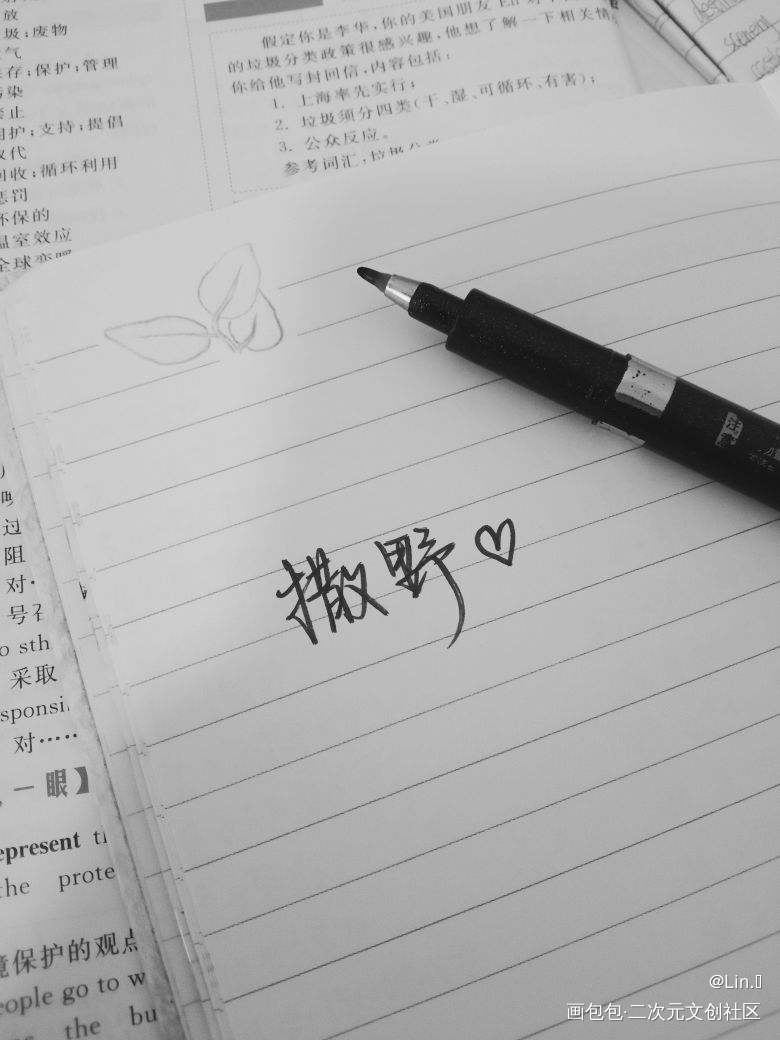 放
圾;废物
气
保存;保护;管理
污染
禁止
拥护;支持;提倡
取代
回收;循环利用
惩罚
环保的
温室效应
全球变暖
假定你是李华,你的美国朋友
的垃圾分类政策很感兴趣,他想了解一下相关情
你给他写封回信,内容包括:
1. 上海率先实行;
2. 垃圾须分四类(干、湿、可循环、有害);
3. 公众反应。
参考词汇:垃圾分类
撒野♡
过
阻
对·
号召
o sth
采取
sponsi
对……
一眼】
epresent
the prote
境保护的观点
eople go to w
the bu
@Lin.
画包包·二次元文创社区